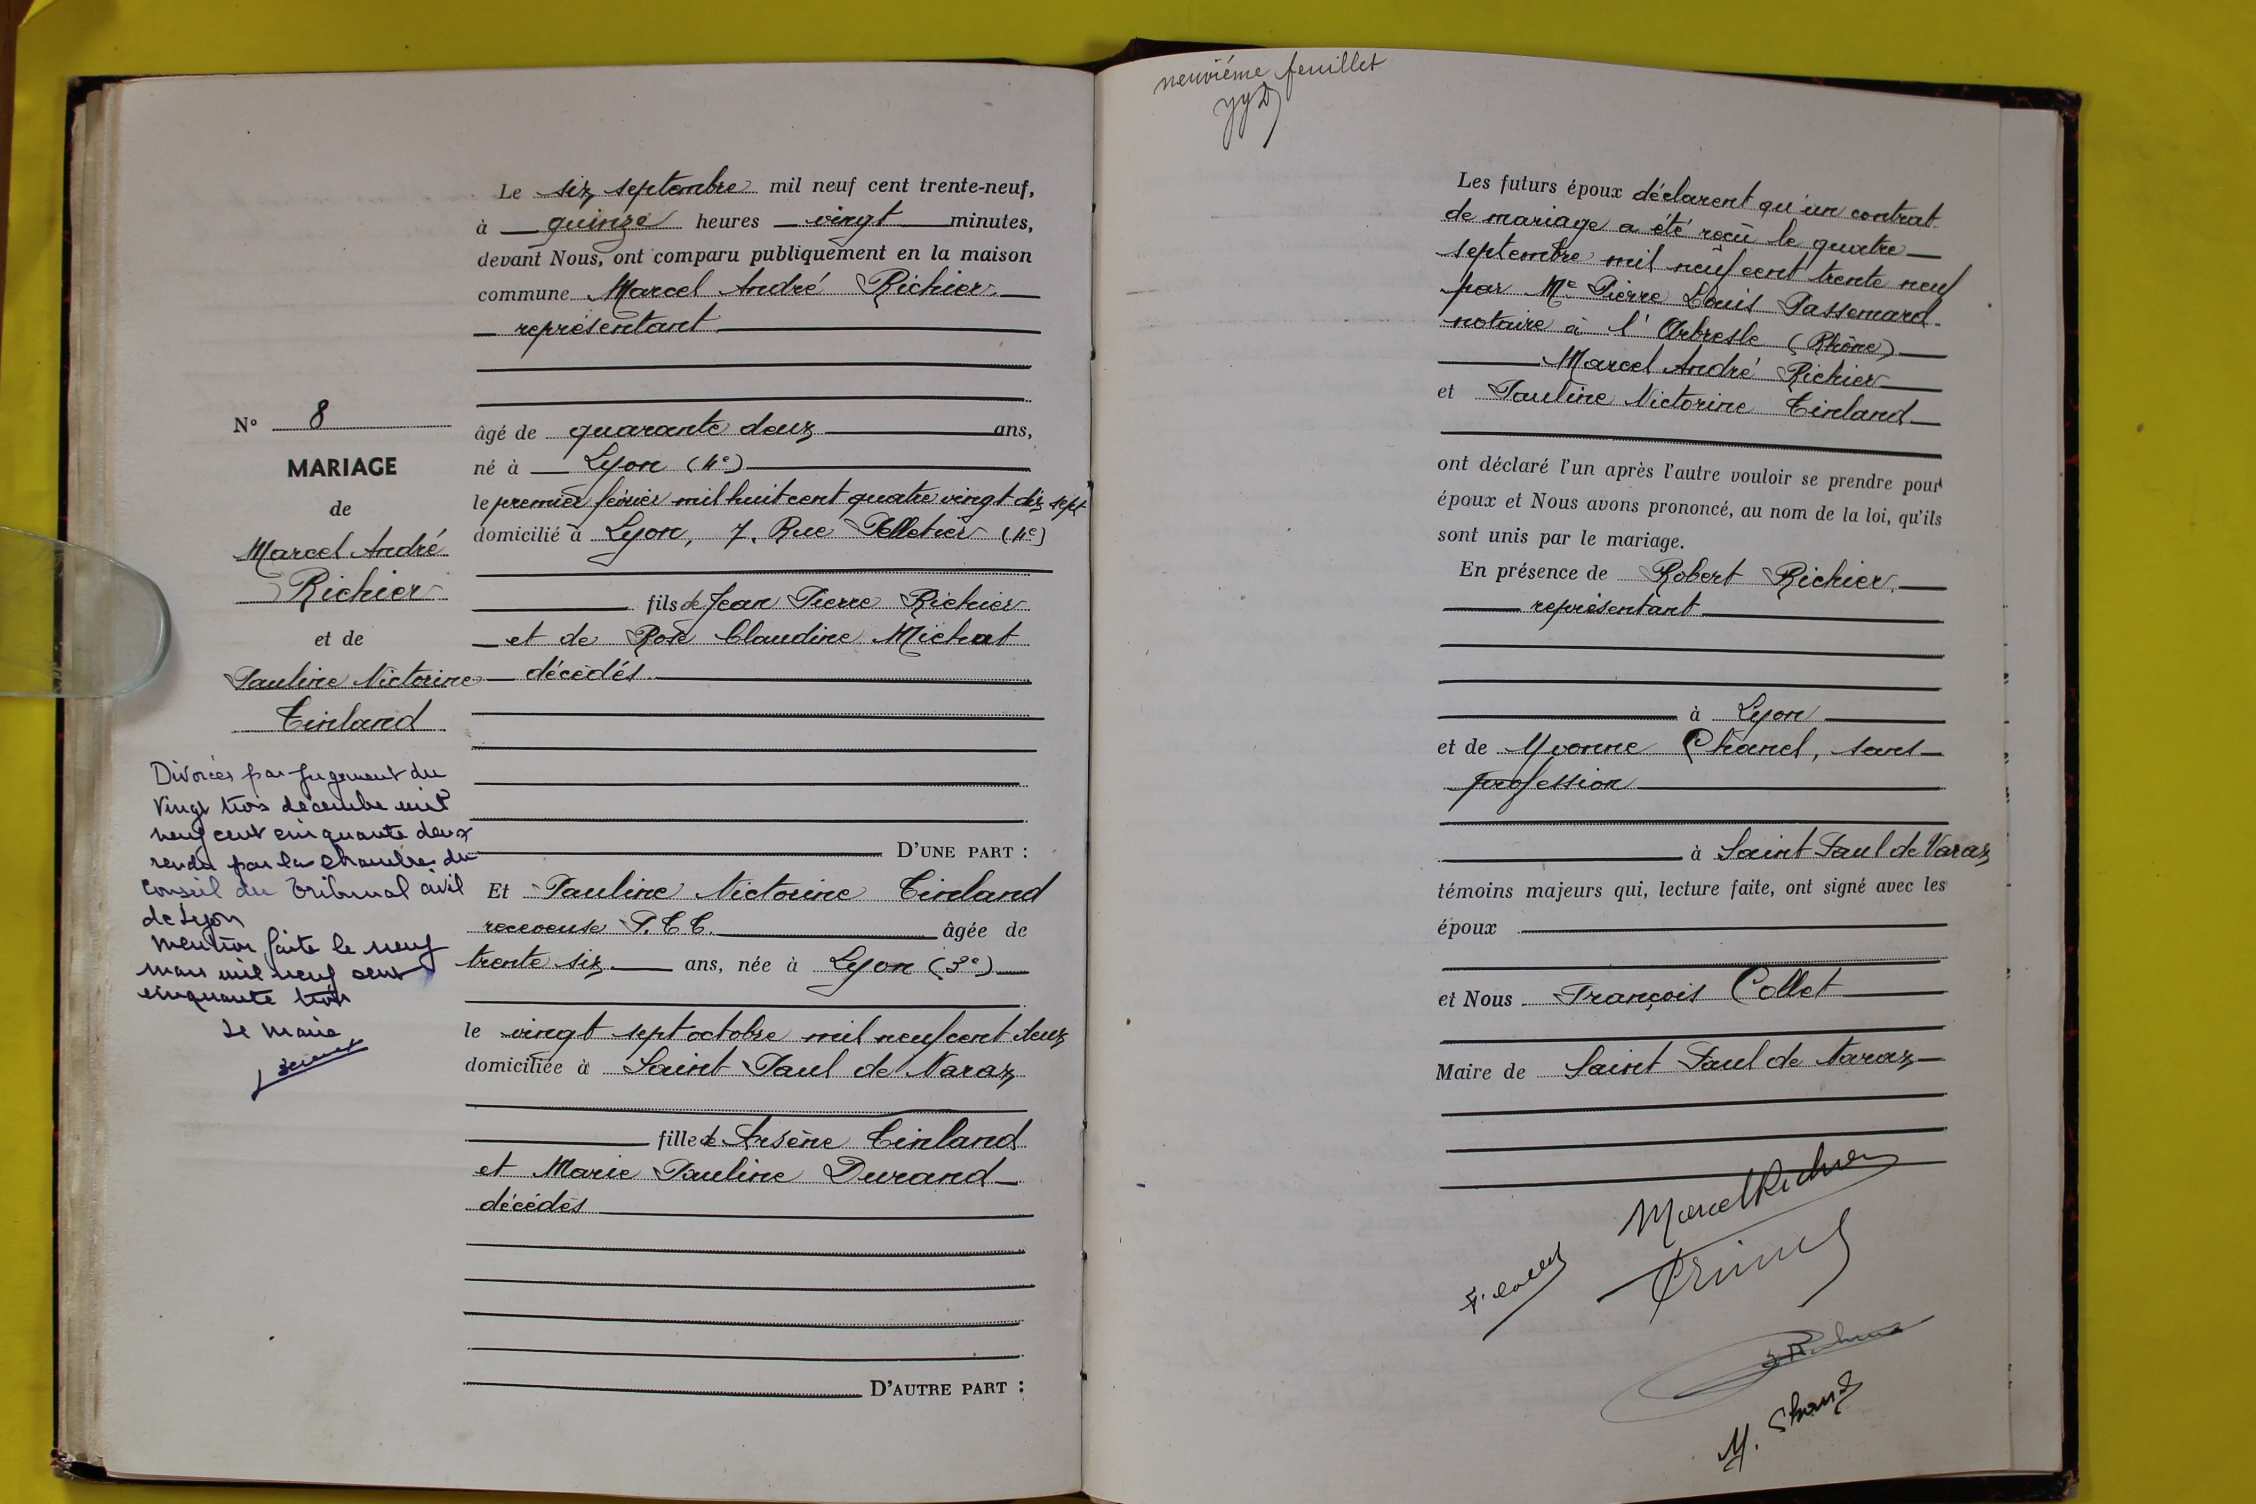 Le six septembre mil neuf cent trente-neuf,
à quinze heures vingt minutes,
devant Nous, ont comparu publiquement en la maison
commune Marcel André Richier
représentant
N° 8
MARIAGE
de
Marcel André
Richier
et de
Pauline Victorine
Tinland
Divorcés par jugement du
vingt trois décembre mil
neuf cent cinquante deux
rendu par la chambre du
conseil du Tribunal civil
de Lyon
Mention faite le neuf
mars mil neuf cent
cinquante trois
Le Maire
âgé de quarante deux ans,
né à Lyon (4e)
le premier février mil huit cent quatre vingt dix sept
domicilié à Lyon, 7, Rue Pelletier (4e)
fils de Jean Pierre Richier
et de Rose Claudine Michat
décédés
D'UNE PART :
Et Pauline Victorine Tinland
receveuse P.T.T. âgée de
trente six ans, née à Lyon (3e)
le vingt sept octobre mil neuf cent deux
domiciliée à Saint Paul de Varax
fille de Arsène Tinland
et Marie Pauline Durand
décédés
D'AUTRE PART :
neuvième feuillet
Les futurs époux déclarent qu'un contrat
de mariage a été reçu le quatre
septembre mil neuf cent trente neuf
par Me Pierre Louis Passemard
notaire à l'Arbresle (Rhône)
Marcel André Richier
et Pauline Victorine Tinland
ont déclaré l'un après l'autre vouloir se prendre pour
époux et Nous avons prononcé, au nom de la loi, qu'ils
sont unis par le mariage.
En présence de Robert Richier
représentant
à Lyon
et de Yvonne Chanel, sans
profession
à Saint Paul de Varax
témoins majeurs qui, lecture faite, ont signé avec les
époux
et Nous François Collet
Maire de Saint Paul de Varax
Marcel Richier
F. Collet